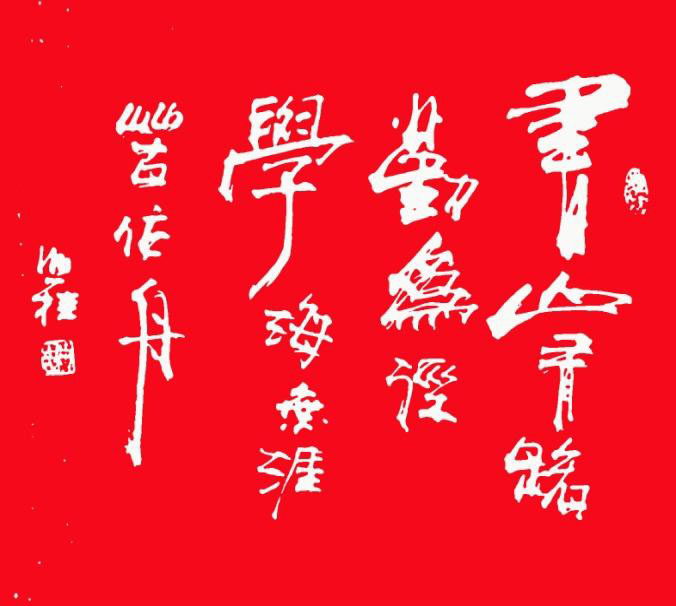 書山有路
勤為徑
學海無涯
苦作舟